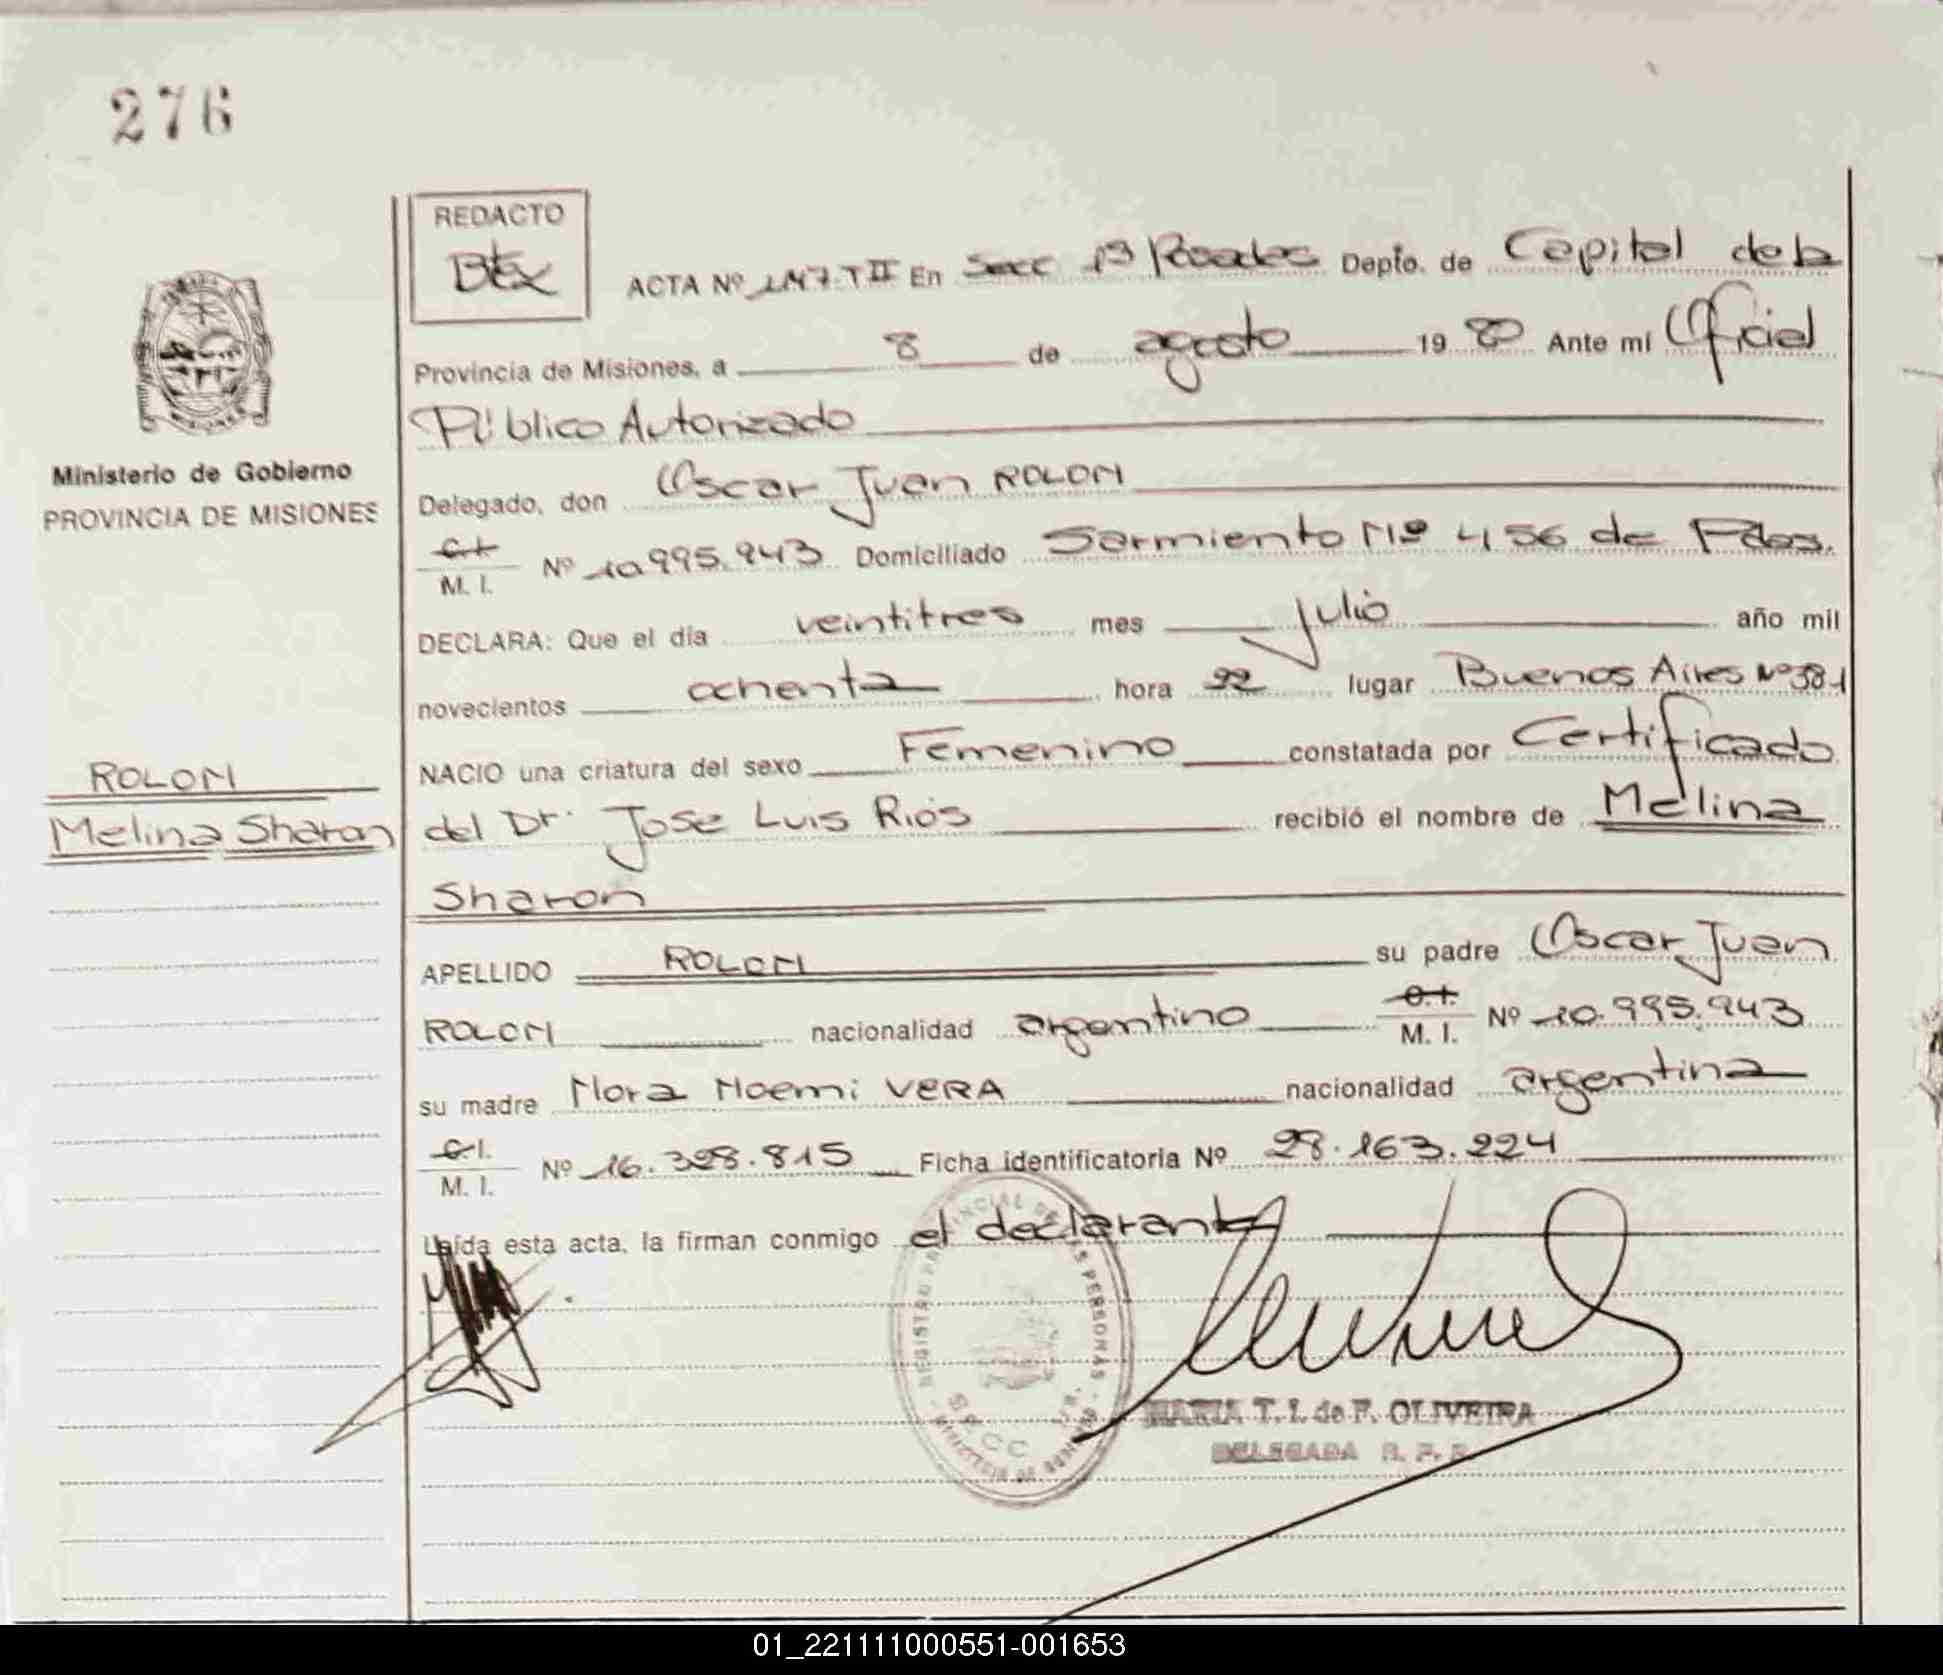 276
REDACTO
ACTA Nº 147. T II En Secc 1ª Posadas Depto. de Capital de la
Provincia de Misiones, a 8 de agosto 1980 Ante mí Oficial
Público Autorizado
Ministerio de Gobierno
PROVINCIA DE MISIONES
Delegado, don Oscar Juan ROLON
C.I. M. I. Nº 10.995.943 Domiciliado Sarmiento Nº 456 de Pdas.
DECLARA: Que el día veintitres mes julio año mil
novecientos ochenta hora 22 lugar Buenos Aires Nº 381
ROLON
NACIO una criatura del sexo Femenino constatada por Certificado
Melina Sharon
del Dr. Jose Luis Rios recibió el nombre de Melina
Sharon
APELLIDO ROLON su padre Oscar Juan
ROLON nacionalidad argentino C.I. M. I. Nº 10.995.943
su madre Nora Noemi VERA nacionalidad argentina
C.I. M. I. Nº 16.328.815 Ficha identificatoria Nº 28.163.224
Leída esta acta, la firman conmigo el declarante
REGISTRO PROVINCIAL DE LAS PERSONAS
SECC
MARIA T. I. de F. OLIVEIRA
DELEGADA R. P. P.
01_221111000551-001653